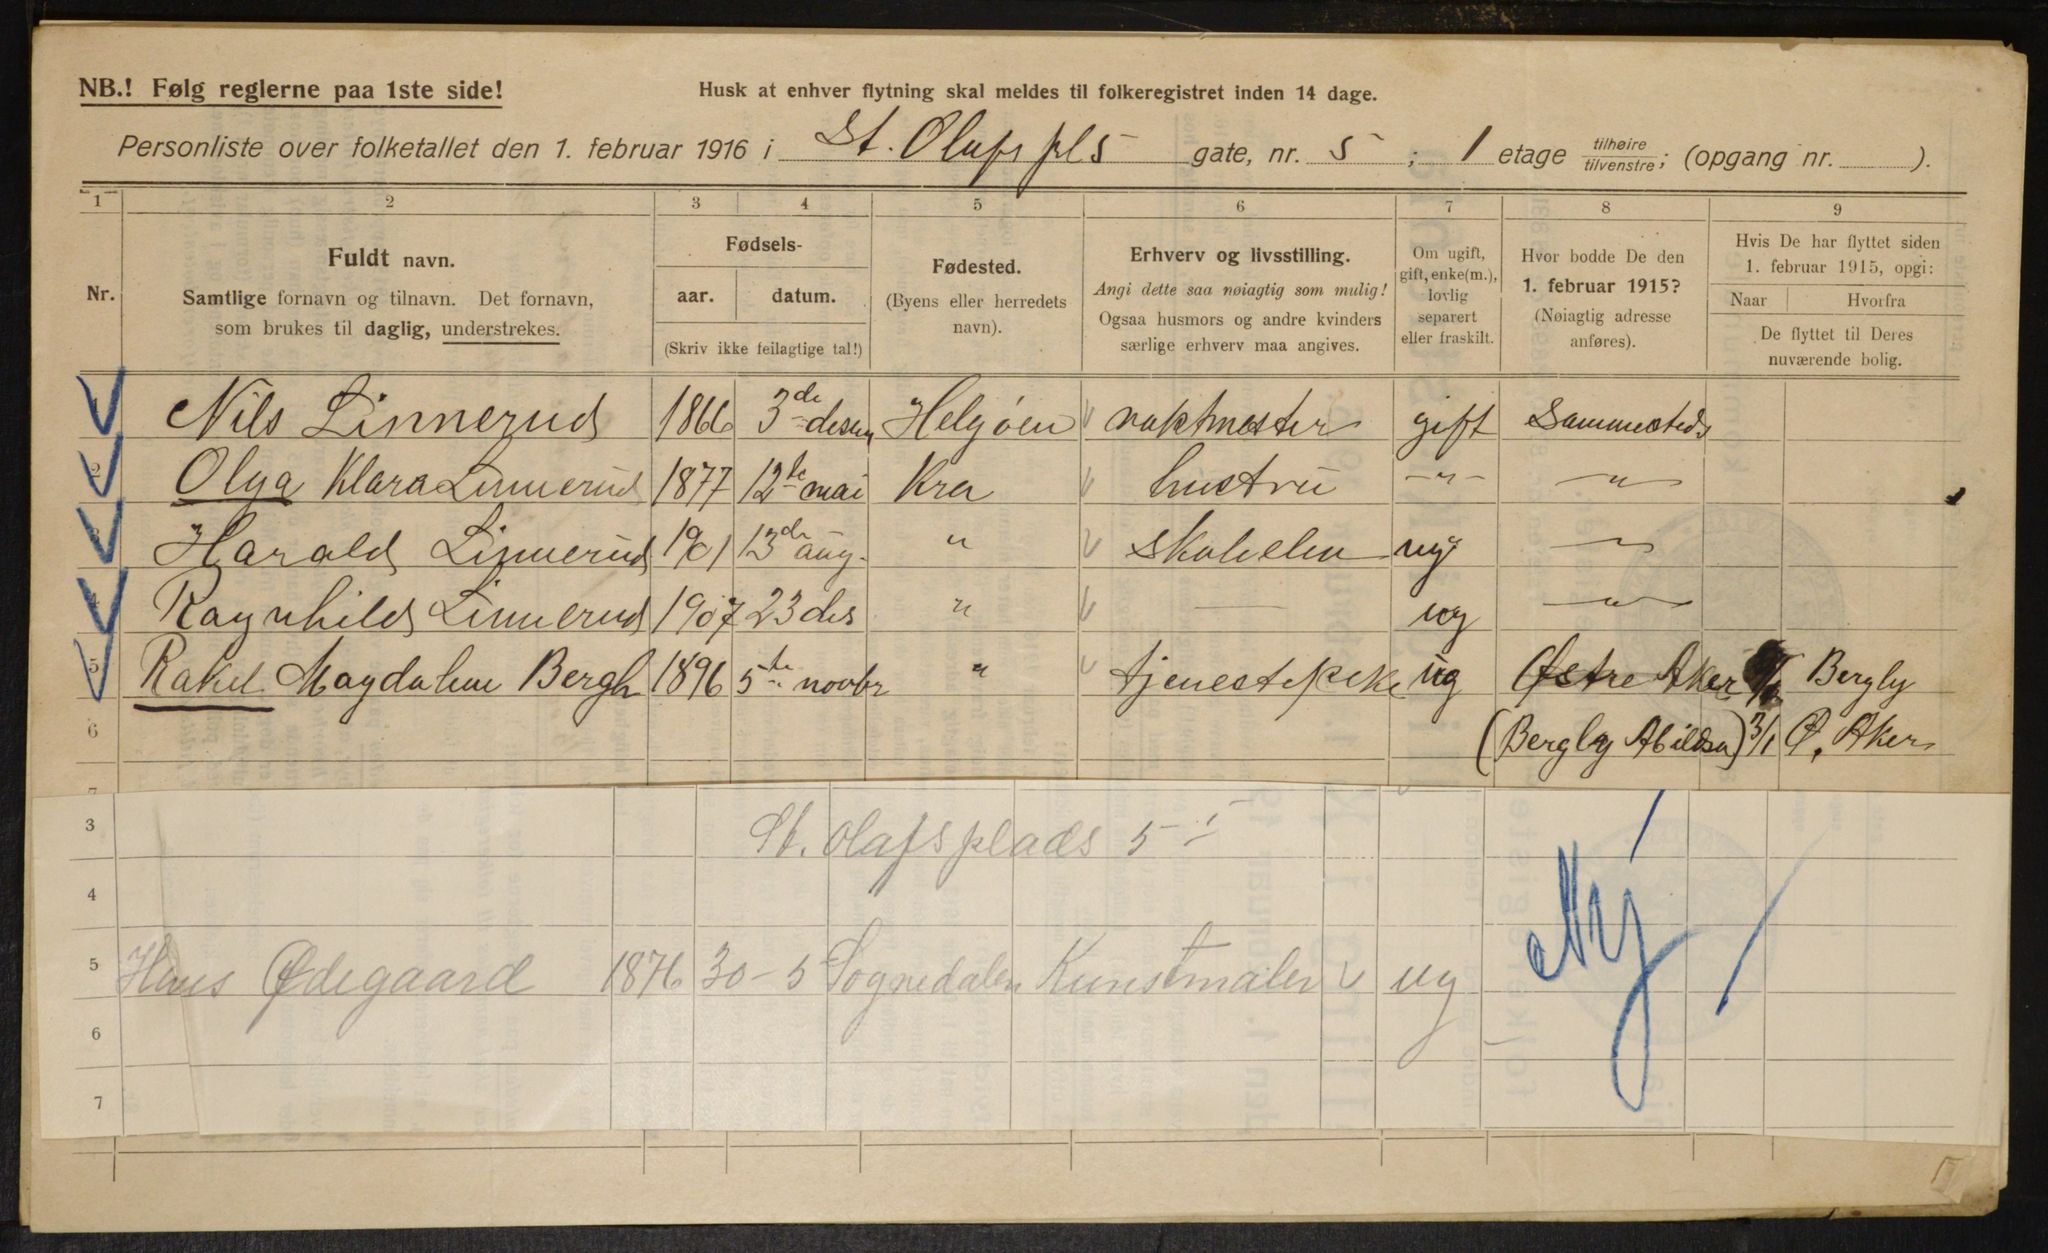 NB.! Følg reglerne paa 1ste side!
Husk at enhver flytning skal meldes til folkeregistret inden 14 dage.
Personliste over folketallet den 1. februar 1916 i St. Olafs pl 5 gate, nr. 5 ; 1 etage tilhøire tilvenstre; (opgang nr. ).
1 2 3 4 5 6 7 8 9
Nr.
Fuldt navn.
Samtlige fornavn og tilnavn. Det fornavn,
som brukes til daglig, understrekes.
Fødsels-
aar. datum.
(Skriv ikke feilagtige tal!)
Fødested.
(Byens eller herredets
navn).
Erhverv og livsstilling.
Angi dette saa nøiagtig som mulig!
Ogsaa husmors og andre kvinders
særlige erhverv maa angives.
Om ugift,
gift, enke(m.),
lovlig
separert
eller fraskilt.
Hvor bodde De den
1. februar 1915?
(Nøiagtig adresse
anføres).
Hvis De har flyttet siden
1. februar 1915, opgi:
Naar Hvorfra
De flyttet til Deres
nuværende bolig.
1 Nils Linnerud 1866 3de desem Helgøen vaktmester gift Sammesteds
2 Olga Klara Linnerud 1877 12te mai Kra hustru -"- -"-
3 Harald Linnerud 1901 13de aug. " skoleelev ug -"-
4 Ragnhild Linnerud 1907 23 des " — ug -"-
5 Rakel Magdalene Bergh 1896 5te novbr " tjenestepike ug Østre Aker Bergly
6 (Bergly Abildsø) 3/1 Ø. Aker
7
3 St. Olafsplads 5 I
4
5 Hans Ødegaard 1876 30-5 Sognedalen Kunstmaler ug Nij
6
7